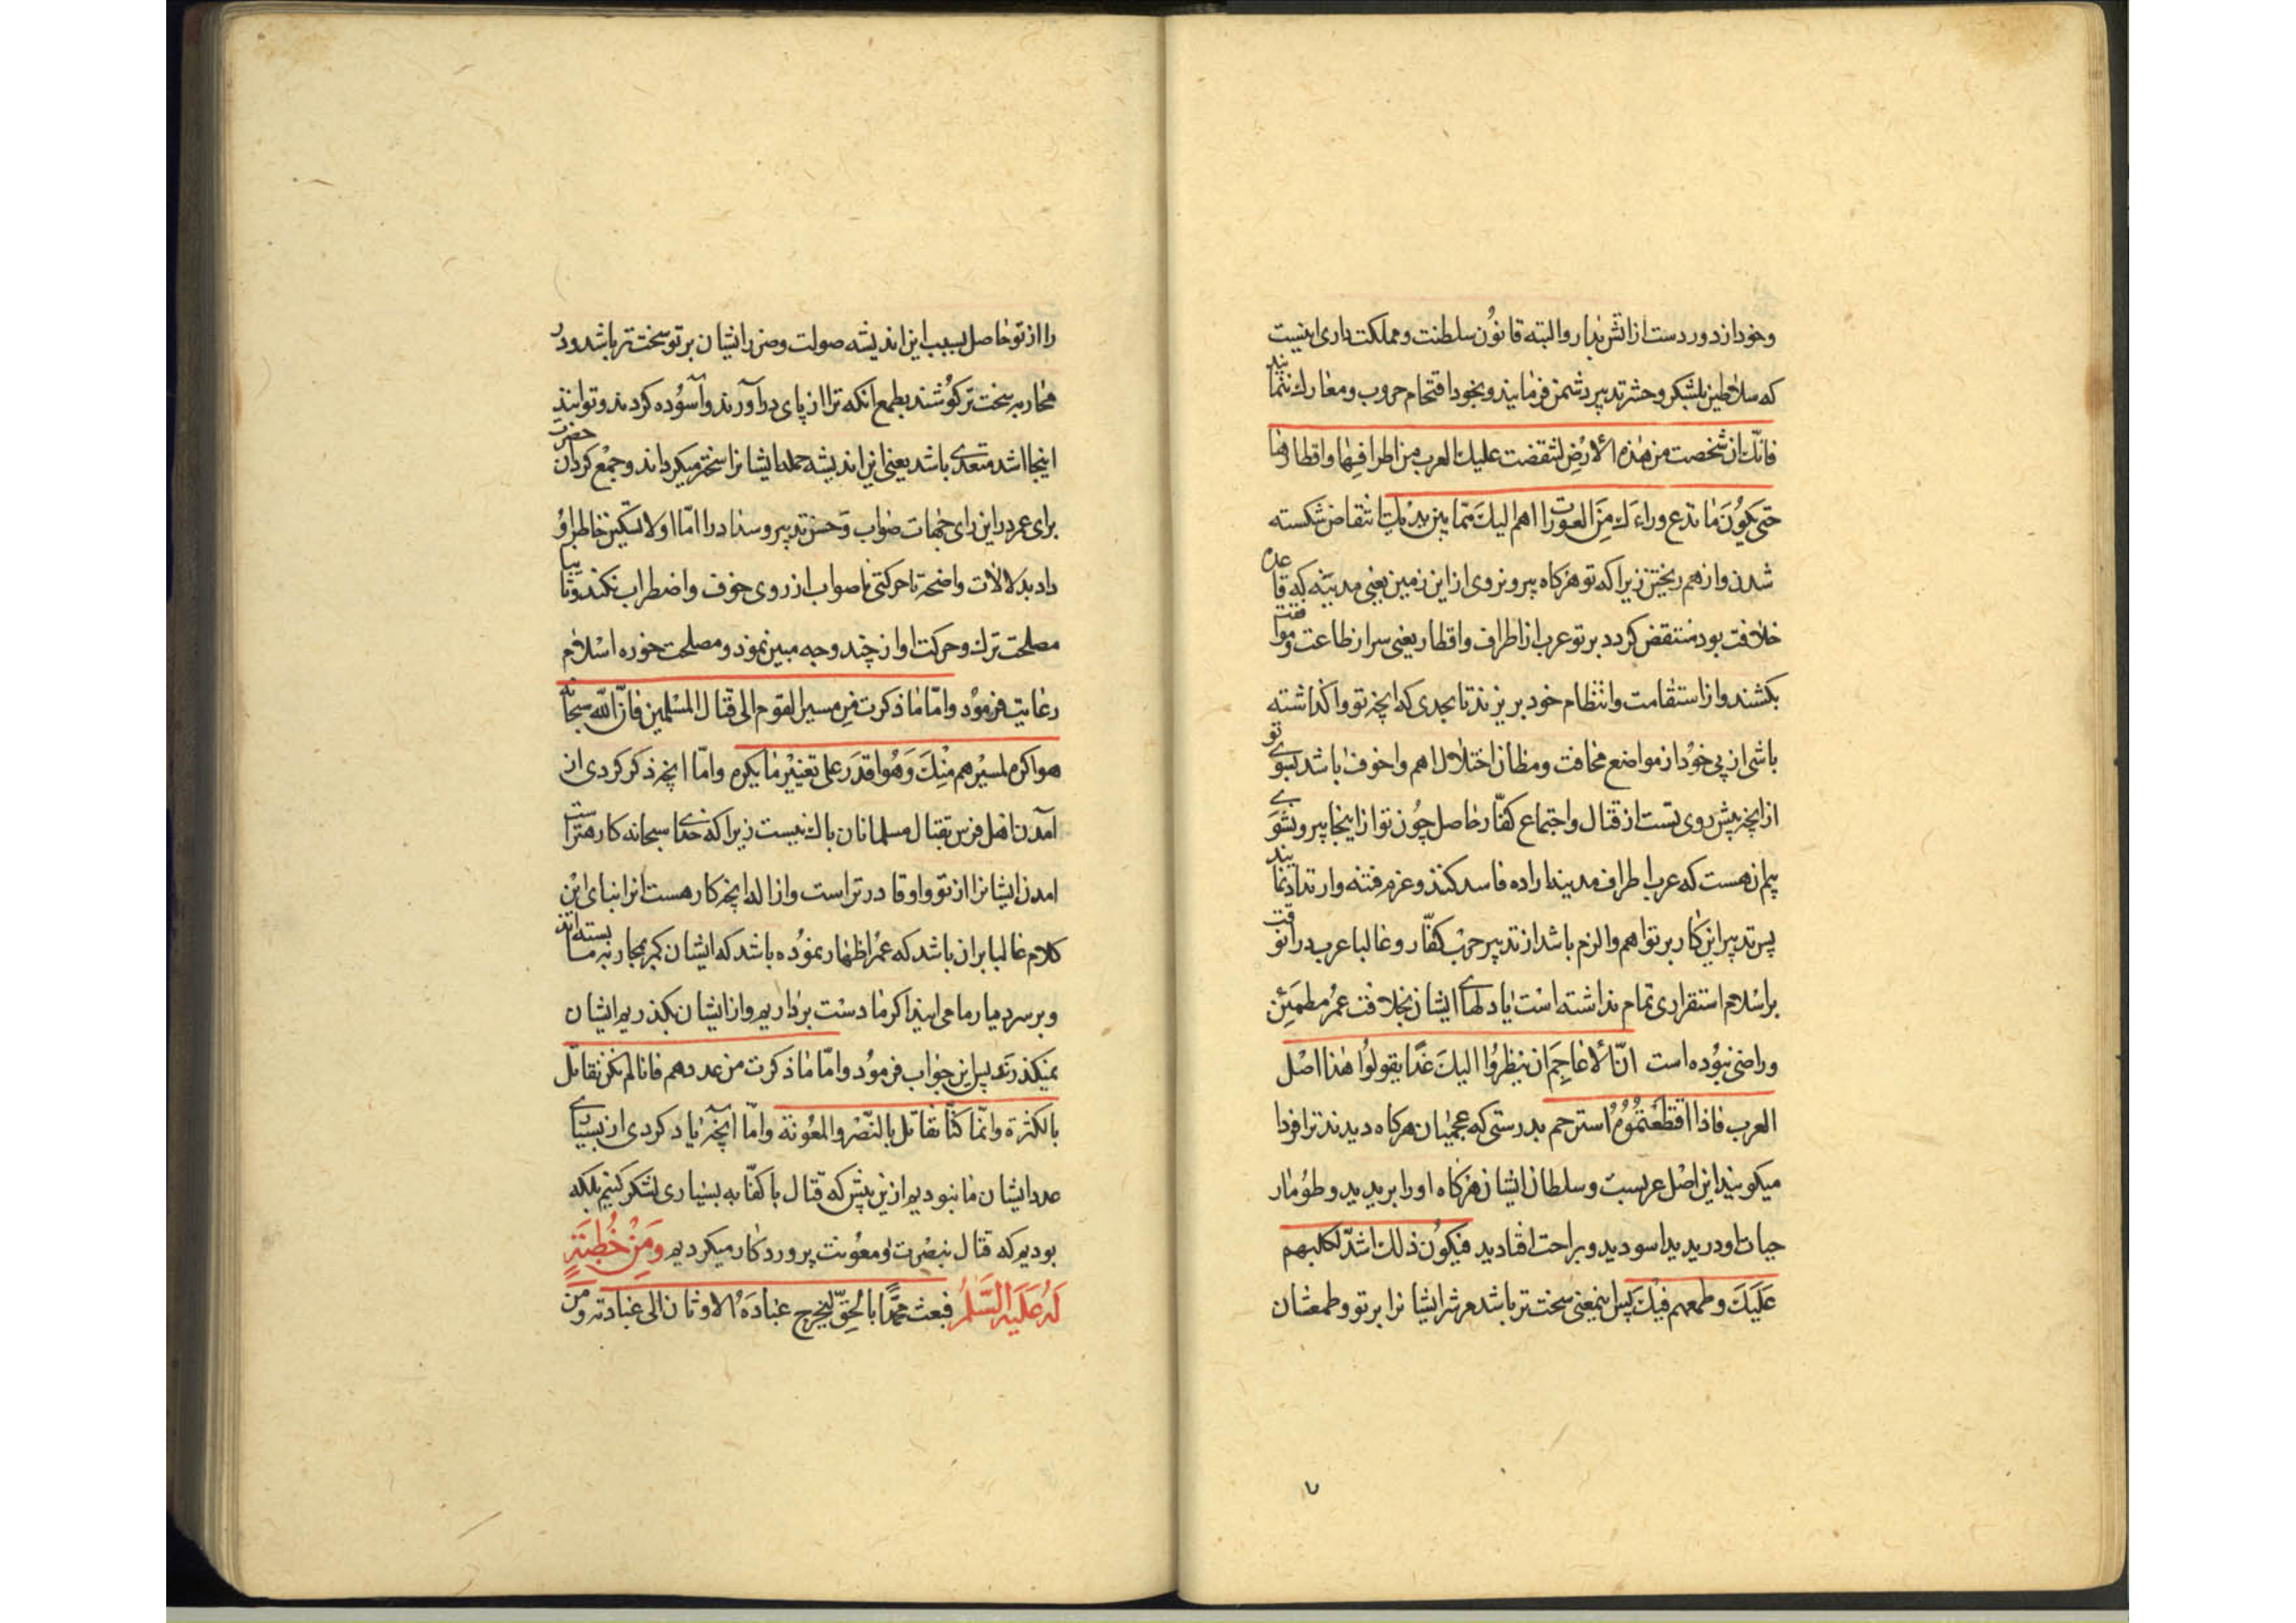 وخود از دور دست ازاتش بدار والبته قانون سلطنت ومملکت داری اینست
که سلاطین بلشکر وحشر تدبیر دشمن فرمایند وبخود اقتحام حروب ومعارك ننمایند
فانّك ان شخصت من هذه الأرض لنتقضت علیك العرب من اطرافها واقطارها
حتی یکون ما تدع وراءك من العورات اهم الیك ممّا بین یدیك انتقاض شکسته
شدن واز هم ریختن زیرا که تو هرکاه بیرون روی از این زمین یعنی مدینه که قاعده
خلافت بود منتقض کردد بر تو عرب از اطراف واقطار یعنی سر از طاعت وموافقت
بکشند واز استقامت وانتظام خود بریزند تا بحدی که انچه تو واکذاشته
باشی از پی خود از مواضع مخافت ومظان اختلال اهم واخوف باشد بسوی تو
از انچه پیش روی تست از قتال واجتماع کفّار حاصل چون تو از اینجا بیرون شوی
بیم ان هست که عرب اطراف مدینه اراده فاسد کنند وعزم فتنه وارتداد نمایند
پس تدبیر این کار بر تو اهم والزم باشد از تدبیر حرب کفّار وغالبا عرب در انوقت
بر اسلام استقراری تمام نداشته است یا دلهای ایشان بخلافت عمر مطمئن
وراضی نبوده است انّ الأعاجم ان ینظروا الیك غدًا یقولوا هذا اصل
العرب فاذا اقتطعتموه استرحتم بدرستی که عجمیان هرکاه دیدند ترا فردا
میکویند این اصل عربست وسلطان ایشان هرکاه او را بریدید وطومار
حیات او دریدید اسودید وبراحت افتادید فیکون ذلك اشدّ لکلبهم
علیك وطمعهم فیك پس اینمعنی سخت تر باشد مر شر ایشانرا بر تو وطمعشان
را از تو حاصل بسبب این اندیشه صولت وضرر ایشان بر تو سخت تر باشد ودر
محاربه سخت تر کوشند بطمع انکه ترا از پای درآورند وآسوده کردند وتواند
اینجا اشد متعدی باشد یعنی این اندیشه حمله ایشانرا سختر میکرداند وجمع کرد ان حضرت
برای عمر در این رای جهات صواب وحسن تدبیر وسداد را امّا اولا تسکین خاطر او
داد بدلالات واضحه تا حرکتی ناصواب از روی خوف واضطراب نکند وثانیا
مصلحت ترك وحرکت او از چند وجه مبین نمود ومصلحت حوزه اسلام
رعایت فرمود وامّا ما ذکرت من مسیر القوم الی قتال المسلمین فانّ الله سبحانه
هو اکره لمسیرهم منك وهو اقدر علی تغییر ما یکره وامّا انچه ذکر کردی از
آمدن اهل فرس بقتال مسلمانان باك نیست زیرا که خدای سبحانه کارهتر است
امدن ایشانرا از تو واو قادرتر است واز اله انچه کاره است انرا بنای این
کلام غالبا بر ان باشد که عمر اظهار نموده باشد که ایشان کمر بمحاربه ما بسته اند
وبر سر دیار ما می ایند اکر ما دست برداریم واز ایشان بکذریم ایشان
نمیکذرند پس این جواب فرمود وامّا ما ذکرت من عددهم فانا لم نکن نقاتل
بالکثرة وانّما کنّا نقاتل بالنّصر والمعونة وامّا آنچه یاد کردی از بسیاری
عدد ایشان ما نبودیم از این پیش که قتال با کفّار به بسیاری لشکر کنیم بلکه
بودیم که قتال بنصرت ومعونت پروردکار میکردیم ومن خطبة
له علیه السّلم فبعث محمّدًا بالحقّ لیخرج عباده الاوثان الی عبادته ومن
٧